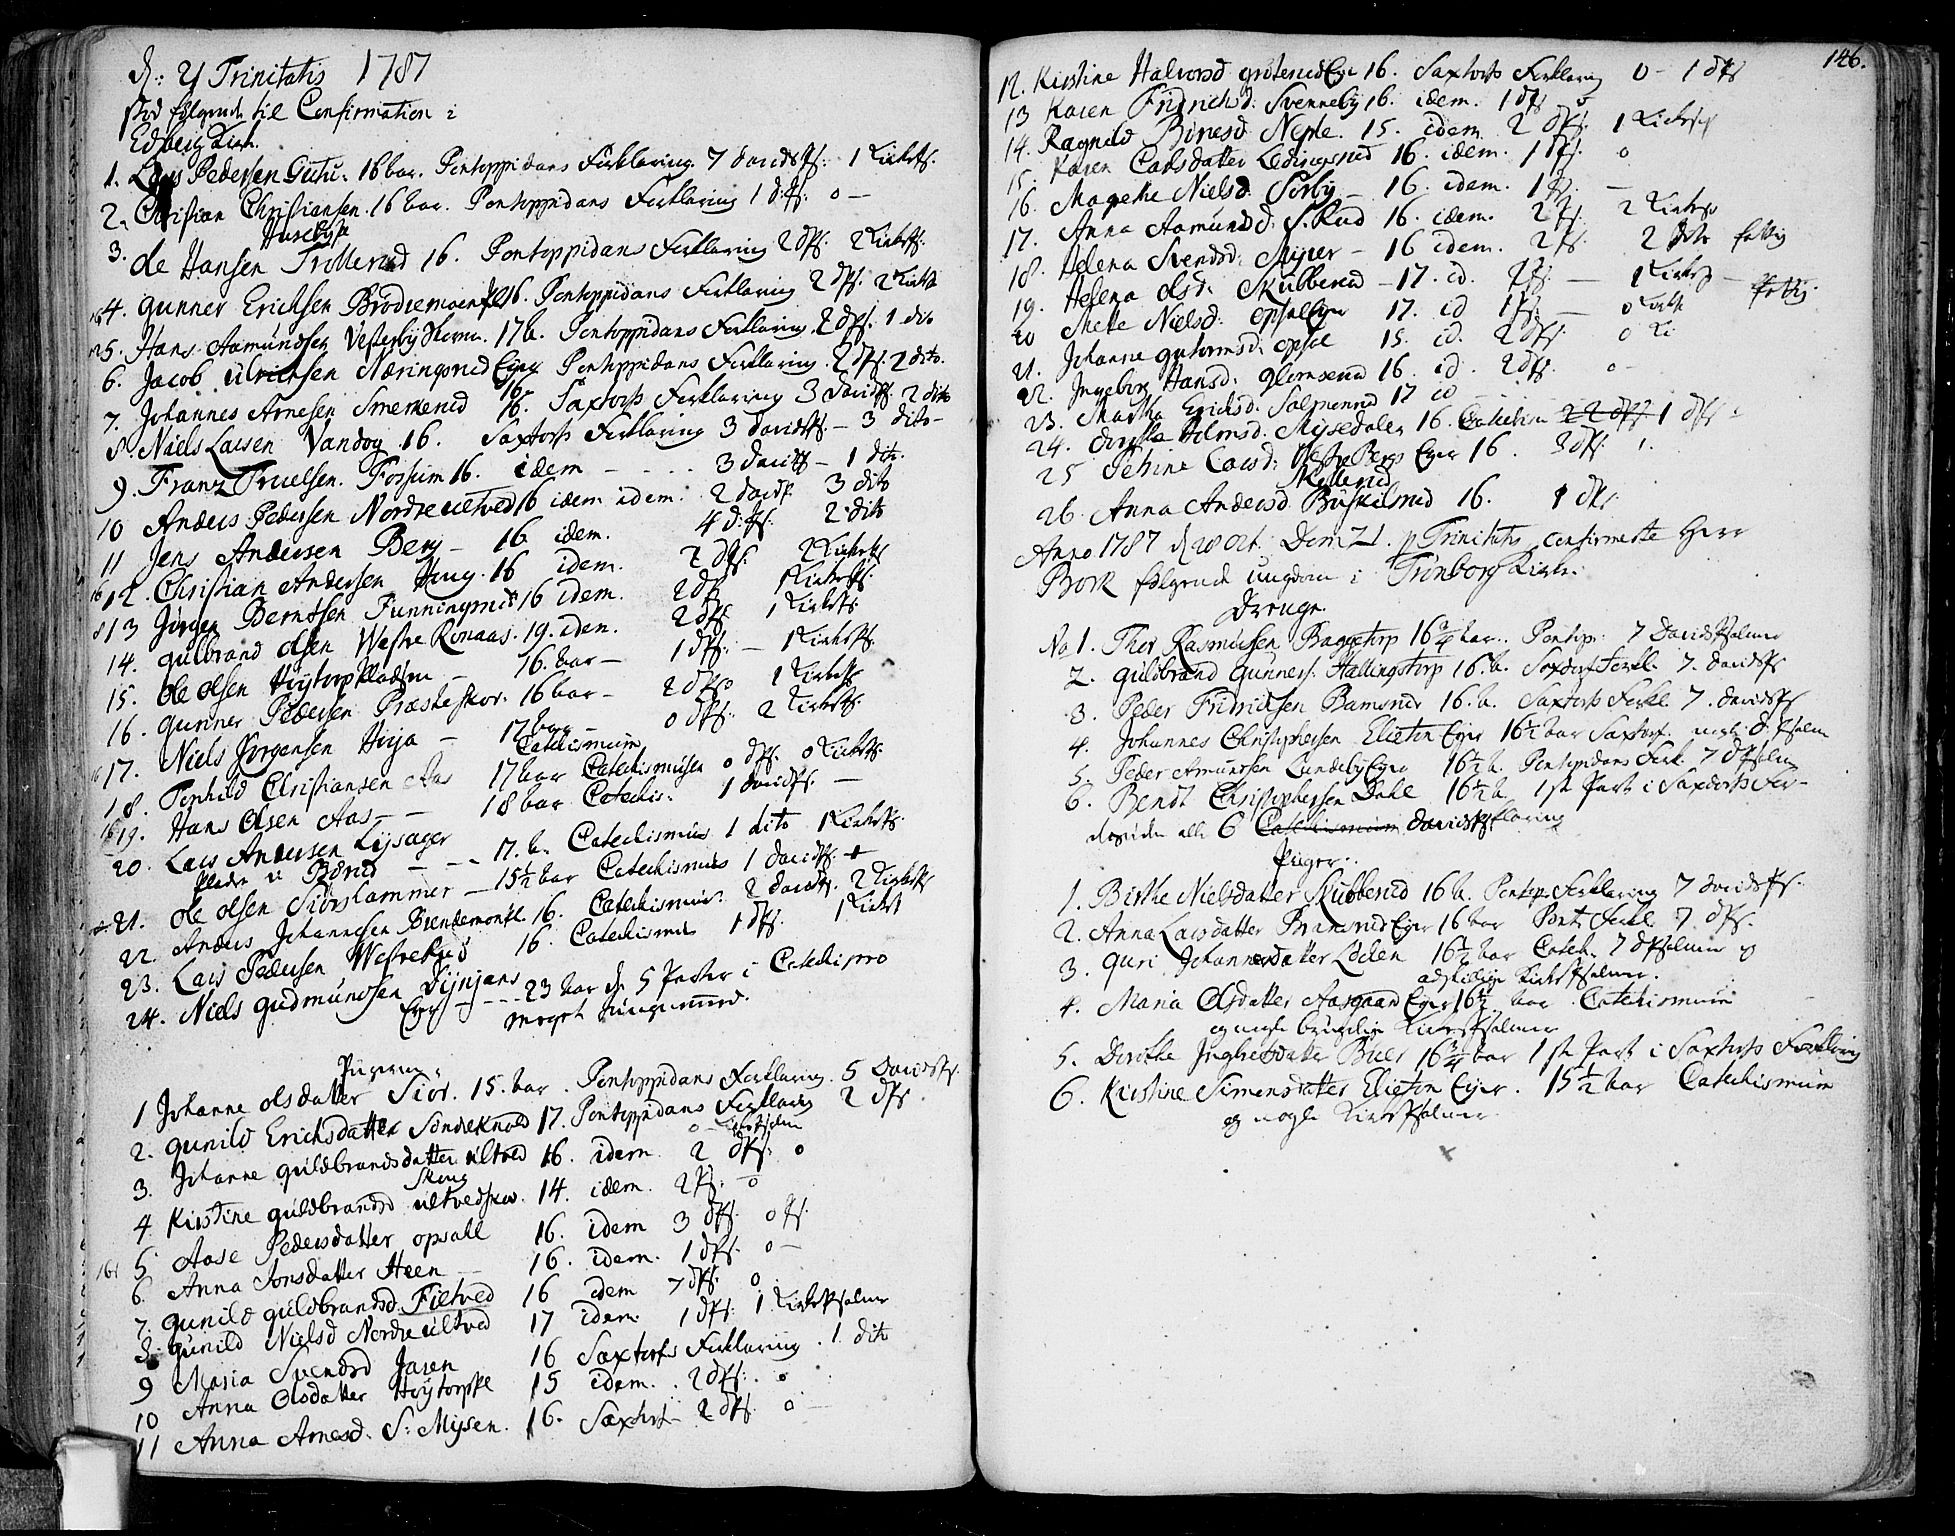 d: 21 Trinitatis 1787
stod følgende til Confirmation i
Edsberg Kirk.
1. Lars Pedersen Gutu: 16 bar. Pontoppidans Forklaring. 7 Davidsps: 1 Kirkeps.
2. Christian Christiansen. 16 bar. Pontoppidans Forklaring 1 d:ps. 0 —
Husebyse
3. Ole Hansen Trollerud 16. Pontoppidans Forklaring 2 dps. 2 Kirkeps.
4. Gunner Erichsen Brodremoen 16. Pontoppidans Forklaring 2 dps. 2 Kirkeps
5. Hans Aamundsen Vesterby 17 b. Pontoppidans Forklaring. 2 dps. 1 dito
6. Jacob Ulrichsen Næringsrud Eyer Pontoppidans Forklaring. 2 dps. 2 dito.
16.
7. Johannes Arnesen Smerkerud 16. Saxtorfs Forklaring 3 Davidps. 2 dito
8. Niels Larsen Vandog 16. Saxtorfs Forklaring 3 Davidsps. — 3 dito —
9. Franz Truelsen. Fossum 16. idem - - - - 3 Davids — 1 dito.
10 Anders Pedersen Nordre ultved 16 idem idem. 2 Davidps. 3 dito
11 Jens Andersen Berg — 16 idem. 4 d:ps. 2 dito
12. Christian Andersen Haug. 16 idem. 2 dps. 2 Kirkeps
13 Jørgen Berntsen Funningsrud 16 idem. 2 dps 1 Kirkeps.
14. Gulbrand Olsen Westre Ronaas. 19. idem. 2 dps. 1 Kirkeps.
15. Ole Olsen Høytorp Pladsen — 16. bar — 1 dps. — 1 Kirkeps.
16. Gunner Pedersen Præsteskov. 16 bar — 2 dps. 1 Kirkeps
17. Niels Jorgensen Huja — 17 bar — 0 dps. 2 Kirkeps.
Catechismum
18. Torchild Christiansen Aas 17 bar Catechismusen 0 dps. 0 Kirkeps.
19. Hans Olsen Aas — — 18 bar Catechis: 1 Davidps. —
20. Lars Andersen Lysager
Børud - - - 17. b. Catechismus 1 dito 1 Kirkeps.
21. Ole Olsen Siørshammer — 15½ bar Catechismus 1 Davidps.
22. Anders Johannesen Brendemoen 16. Catechismus. 2 Davidps. 2 Kirkeps
23. Lars Pedersen Westrebye 16. Catechismus 1 dps. 1 Kirkeps
24. Niels Gudmundsen Dynjans
Eyer — — - - - 23 bar de 5 Parter i Catechismo
meget
Pigerne.
1 Johanne Olsdatter Sior. 15. bar. Pontoppidans Forklaring. 5 Davidsps.
2. Gunild Erichsdatter Sondre Knold 17. Pontoppidans Forklaring 2 dps.
0 — Kirkepsalm
3. Johanne Guldbrandsdatter ultved 16. idem. 2 dps. 0
Skoug
4 Kirstine Guldbrandsd ultvedskov. 14. idem. 2 ps. 0
5 Aase Pedersdatter opsall 16. idem 3 dps. 0 ps.
6. Anna Jonsdatter Heen — 16. idem. 1 dps. 0 —
7. Gunild Guldbrandsd. Fieltved 16 idem 7 dps. 0
8. Gunild Nielsd Nordre ultved 17 idem. 1 dps. 1 Kirkepsalme
9 Maria Svendsd Jaren 16 Saxtorfs Forklaring. 1 dito
10 Anna Olsdatter Høytorpe 15 idem. 2 dps. 0
11 Anna Arnesd. S: Mysen. 16. Saxtorf — 2 dps. 0 —
146.
12. Kirstine Halvorsd grøterud Eyer 16. Saxtorfs Forklaring 0 — 1 dps
13 Karen Fridrichsd: Svenneby 16. idem. 1 dps 0
14. Ragnild Børresd. Neple. 15. idem 2 dps. 1 Kirkeps
15. Karen Carlsdatter Ledingsrud 16. idem. 1 dps. 0
16. Magrethe Nielsd. Sørby — 16. idem. 1 ps. —
17. Anna Aamundsd: S. Rud 16. idem. 2 ps. 2 Kirkeps
18. Helena Svendsd: Myrer — 16 idem. 2 ps. 2 dito fattig
19. Helena Olsd: Skubberud — 17. id. 2 ps. — 1 Kirkeps — fattig.
20 Mette Nielsd: opsal Eyer 17. id 1 ps. — 0 Kirke
21. Johanne Gutormsd: opsal 15. id. 2 dps. 0 Ki
22. Ingeborg Hansd: Glomserud 16 id. 2 dps. 0 —
23. Martha Erichsd: Salmonrud 17 id
24. Dorthe Holmsd: Mysedalen 16. Catechism 2 2 dps 1 dps.
25 Petrine Larsd: Westre Berg Eyer 16. 3 dps. 1.
Skollerud
26. Anna Andersd Buskilsrud 16. 1 dps.
Anno 1787 d 28 Oct. Dom 21. p Trinitatis confirmerte Herr
Bork følgende ungdom i Trinborg Kirke.
Drenge.
No 1. Thor Rasmussen Baggetorp 16¾ bar.. Pontop: 7 Davidspsalmer
2. Guldbrand Gunners: Hallingstorp 16. b. Saxtorfs Forkl. 7. Davidsps
3. Peder Fridrichsen Ramsrud 16. b. Saxtorfs Forkl. 7. Davidsps
4. Johannes Christophersen Elieton Eyer 16½ bar Saxtorf. nogle d psalm
5. Peder Amundsen Lundeby Eyer 16½ b. Pontopidans Fork. 7 dpsalm
6. Bendt Christophersen Dahl 16½ b 1ste Part i Saxtorfs For-
desuden alle 6 Catechismum Davidsps klaring
Piger.
1. Birthe Nielsdatter Skubberud 16 b. Pontop. Forklaring 7 Davidsps.
2. Anna Larsdatter Bramsrud Eyer 16 bar Pont. Forkl. 7 dps.
3. Guri Johannesdatter Løchen 16½ bar Catech. 7 dpsalmer og
adskillige Kirkepsalmer.
4. Maria Olsdatter Aasgaard Eyer 16½ bar. Catechismum
og nogle brugelige Kirkepsalmer
5. Dorthe Inghersdatter Buer 16¾ bar 1ste Part i Saxtorfs Forklaring
6. Kirstine Simensdatter Elieton Eyer. 15½ bar Catechismum
og nogle Kirkepsalmer.